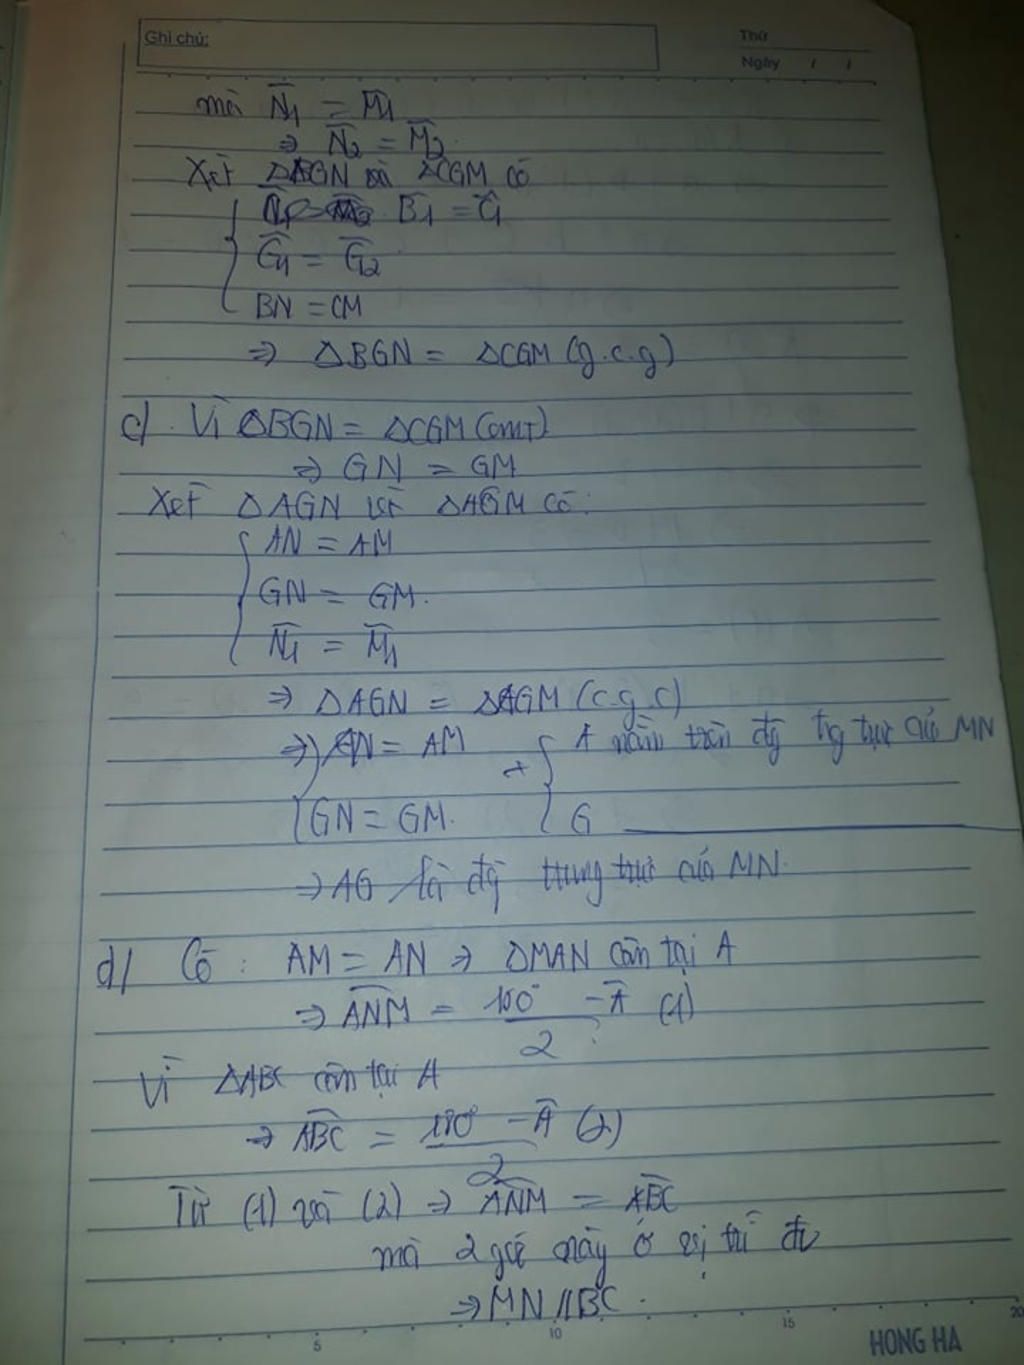 Ghi chú:
Thứ
Ngày / /
mà N̂1 = M̂1
⇒ N̂2 = M̂2
Xét ΔBGN và ΔCGM có
B̂1 = Ĉ1
Ĝ1 = Ĝ2
BN = CM
⇒ ΔBGN = ΔCGM (g.c.g)
c/ Vì ΔBGN = ΔCGM (cmt)
⇒ GN = GM
Xét ΔAGN và ΔAGM có:
AN = AM
GN = GM.
N̂1 = M̂1
⇒ ΔAGN = ΔAGM (c.g.c)
⇒ AN = AM + A nằm trên đg tng trực của MN
GN = GM. G
⇒ AG là đg trung trực của MN.
d/ Có: AM = AN ⇒ ΔMAN cân tại A
⇒ ANM = 180° - Â (1)
2
Vì ΔABC cân tại A
⇒ ABC = 180° - Â (2)
2
Từ (1) và (2) ⇒ ANM = ABC
mà 2 góc này ở vị trí đv
⇒ MN // BC.
5 10 15 20
HONG HA